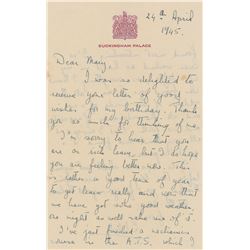 24th April
1945.
BUCKINGHAM PALACE
Dear Mary,
I was so delighted to
receive your letter of good
wishes for my birthday. Thank
you so much for thinking of me.
I'm sorry to hear that you
are on sick leave, but I do hope
you are feeling better now. This
is rather a good time of year
to get leave really and now that
we have got such good weather,
one might as well make use of it.
I've just finished a mechanics
course in the A.T.S. which I